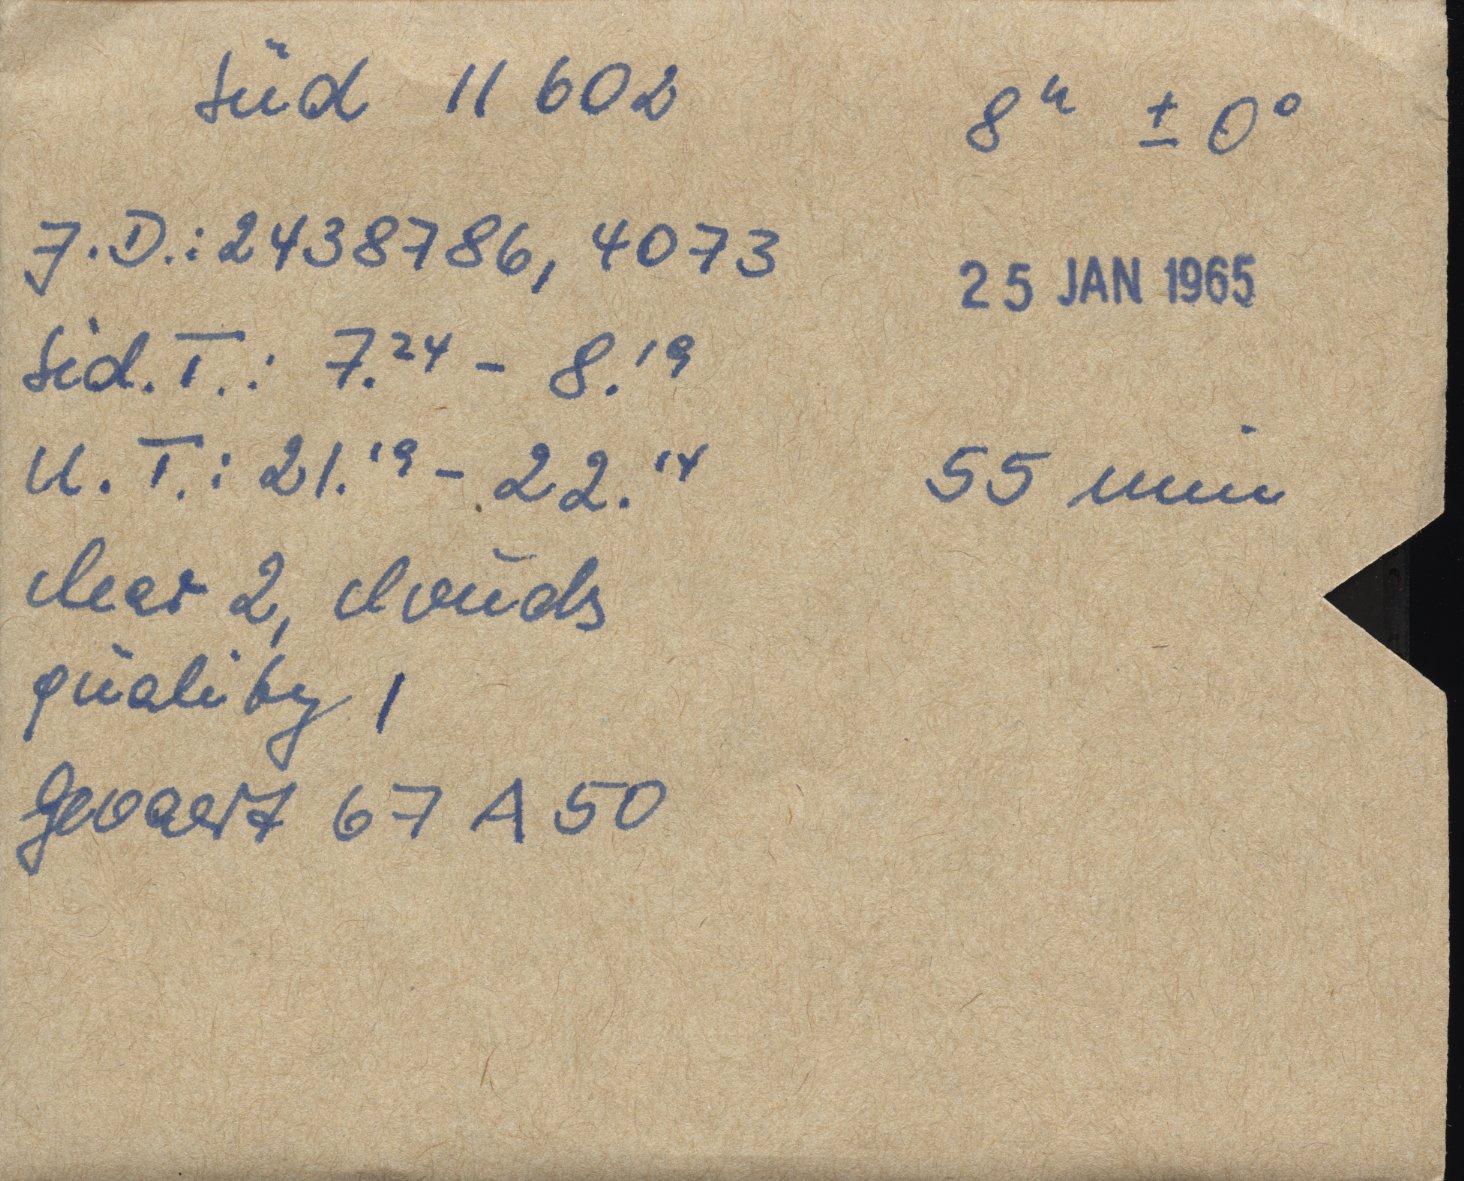 Süd 11 602 8ʰ ± 0°
J.D.: 2438786,4073
25 JAN 1965
Sid. T.: 7.²⁴ - 8.¹⁹
U. T.: 21.¹⁹ - 22.¹⁴ 55 min
clear 2, clouds
quality 1
Gevaert 67 A 50